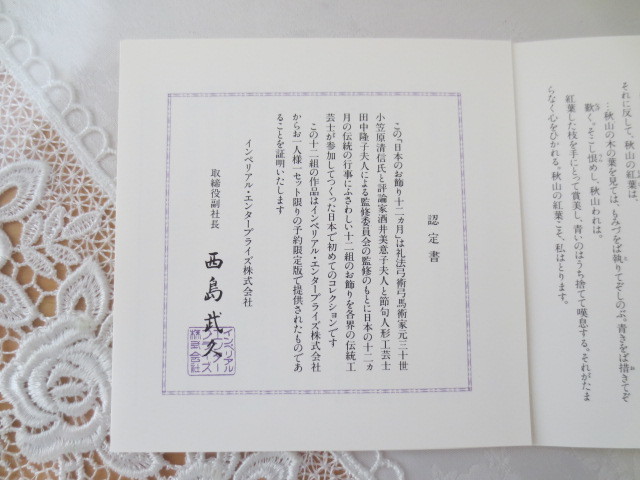 それに反して、秋山の紅葉は、
…秋山の木の葉を見ては、もみづをば執りてぞしのぶ。青きをば措きてぞ
歎く。そこし恨めし、秋山われは。
紅葉した枝を手にとって賞美し、青いのはうち捨てて嘆息する。それがたま
らなく心をひかれる。秋山の紅葉こそ、私はとります。
認定書
この「日本のお飾り十二ヵ月」は礼法弓術弓馬術家元三十世
小笠原清信氏と評論家酒井美意子夫人と節句人形工芸士
田中隆子夫人による監修委員会の監修のもとに日本の十二ヵ
月の伝統の行事にふさわしい十二組のお飾りを各界の伝統工
芸士が参加してつくった日本で初めてのコレクションです
この十二組の作品はインペリアル・エンタープライズ株式会社
からお一人様一セット限りの予約限定版で提供されたものであ
ることを証明いたします
インペリアル・エンタープライズ株式会社
取締役副社長
西島武久
インペリアル
エンタープライズ
株式会社